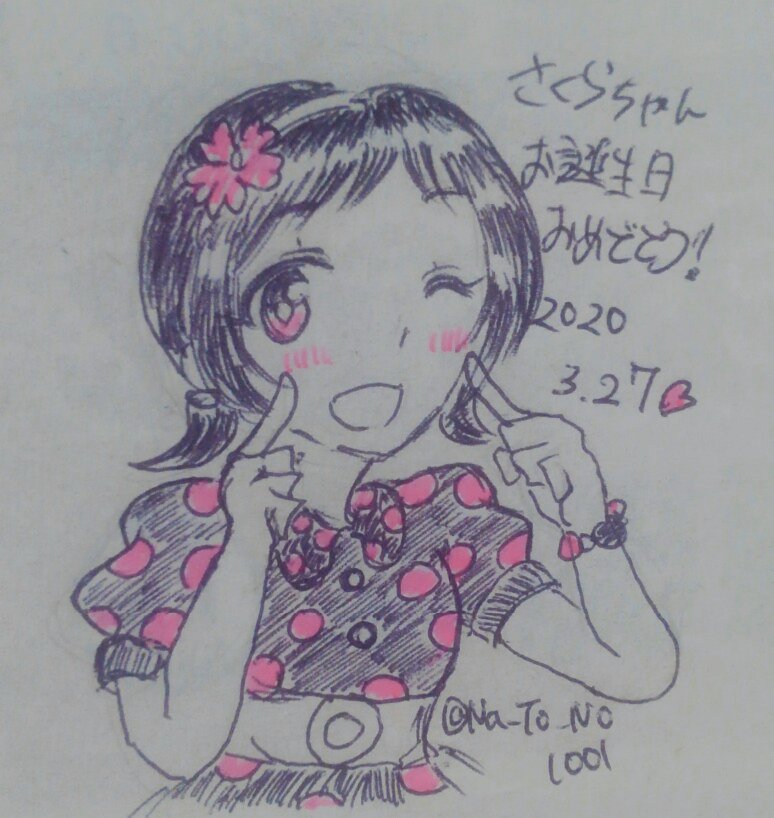 さくらちゃん
お誕生日
おめでとう!
2020
3.27
@Na_To_No
1001